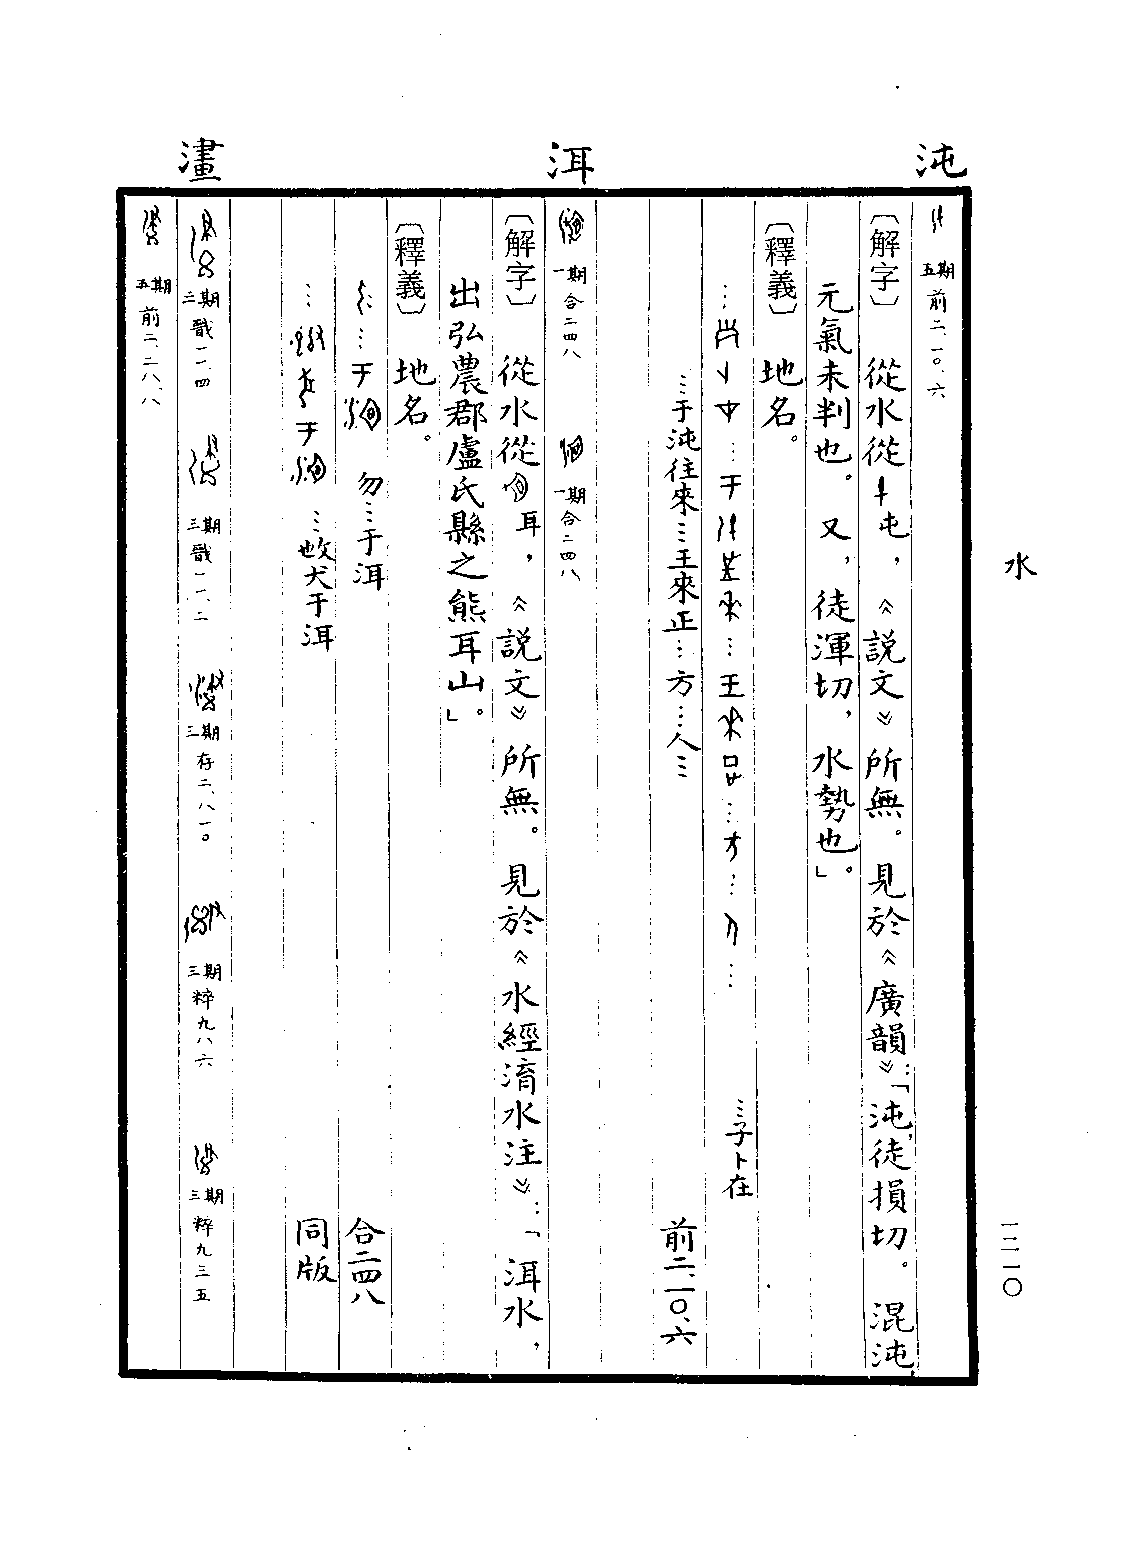 水
一二一〇
沌
五期 前二、一〇、六
〔解字〕 從水從屯，《説文》所無。見於《廣韻》：「沌，徒損切。混沌
元氣未判也。又，徒渾切，水勢也」。
〔釋義〕 地名。
…子卜在
…于沌往來…王來正…方…人… 前二、一〇、六
洱
一期 合二四八 一期 合二四八
〔解字〕 從水從耳，《説文》所無。見於《水經淯水注》：「洱水，
出弘農郡盧氏縣之熊耳山」。
〔釋義〕 地名。
勿…于洱 合二四八
…犬于洱 同版
澅
三期 戩一一、四 三期 戩一一、二 三期 存二、八一〇 三期 粹九八六 三期 粹九三五
五期 前二、二八、八